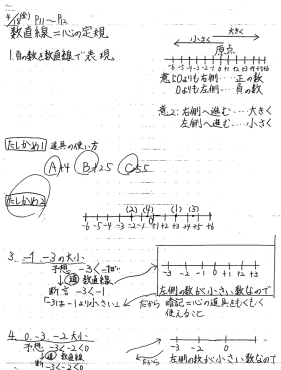 4/18(金) P11〜P12
数直線=心の定規
1. 負の数を数直線で表現
大きく
小さく
原点
-6 -5 -4 -3 -2 -1 0 +1 +2 +3 +4 +5 +6
意1. 0よりも右側‥‥正の数
0よりも左側‥‥負の数
意2. 右側へ進む‥‥大きく
左側へ進む‥‥小さく
たしかめ1 道具の使い方
A +4 B +2.5 C -5.5
たしかめ2
(2) (4) (1) (3)
-6 -5 -4 -3 -2 -1 0 +1 +2 +3 +4 +5 +6
3. -1 -3の大小
予想 -3<-1
↓道 数直線
断言 -3<-1
「-3は-1より小さい」
-3 -2 -1 0 +1 +2 +3
左側の数が小さい数なので
だから 暗記=心の道具をもくもく
使えること
4. 0. -3. -2 大小
予想 -3<-2<0
↓道 数直線
断 -3<-2<0
-3 -2 0
だから 左側の数が小さい数なので